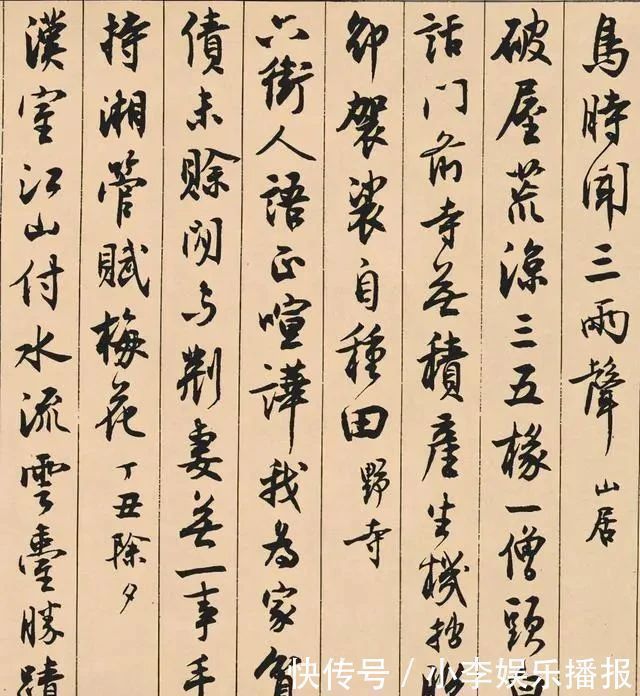 鳥時闻三兩聲 山居
破屋荒涼三五椽一僧頭
話门前寺無積產生機拙
卻袈裟自種田 野寺
六街人語正喧譁我為家貧
債未賒閒与荊妻無一事手
持湘管賦梅花 丁丑除夕
漢室江山付水流雲臺勝蹟
快传号 / 小李娱乐播报